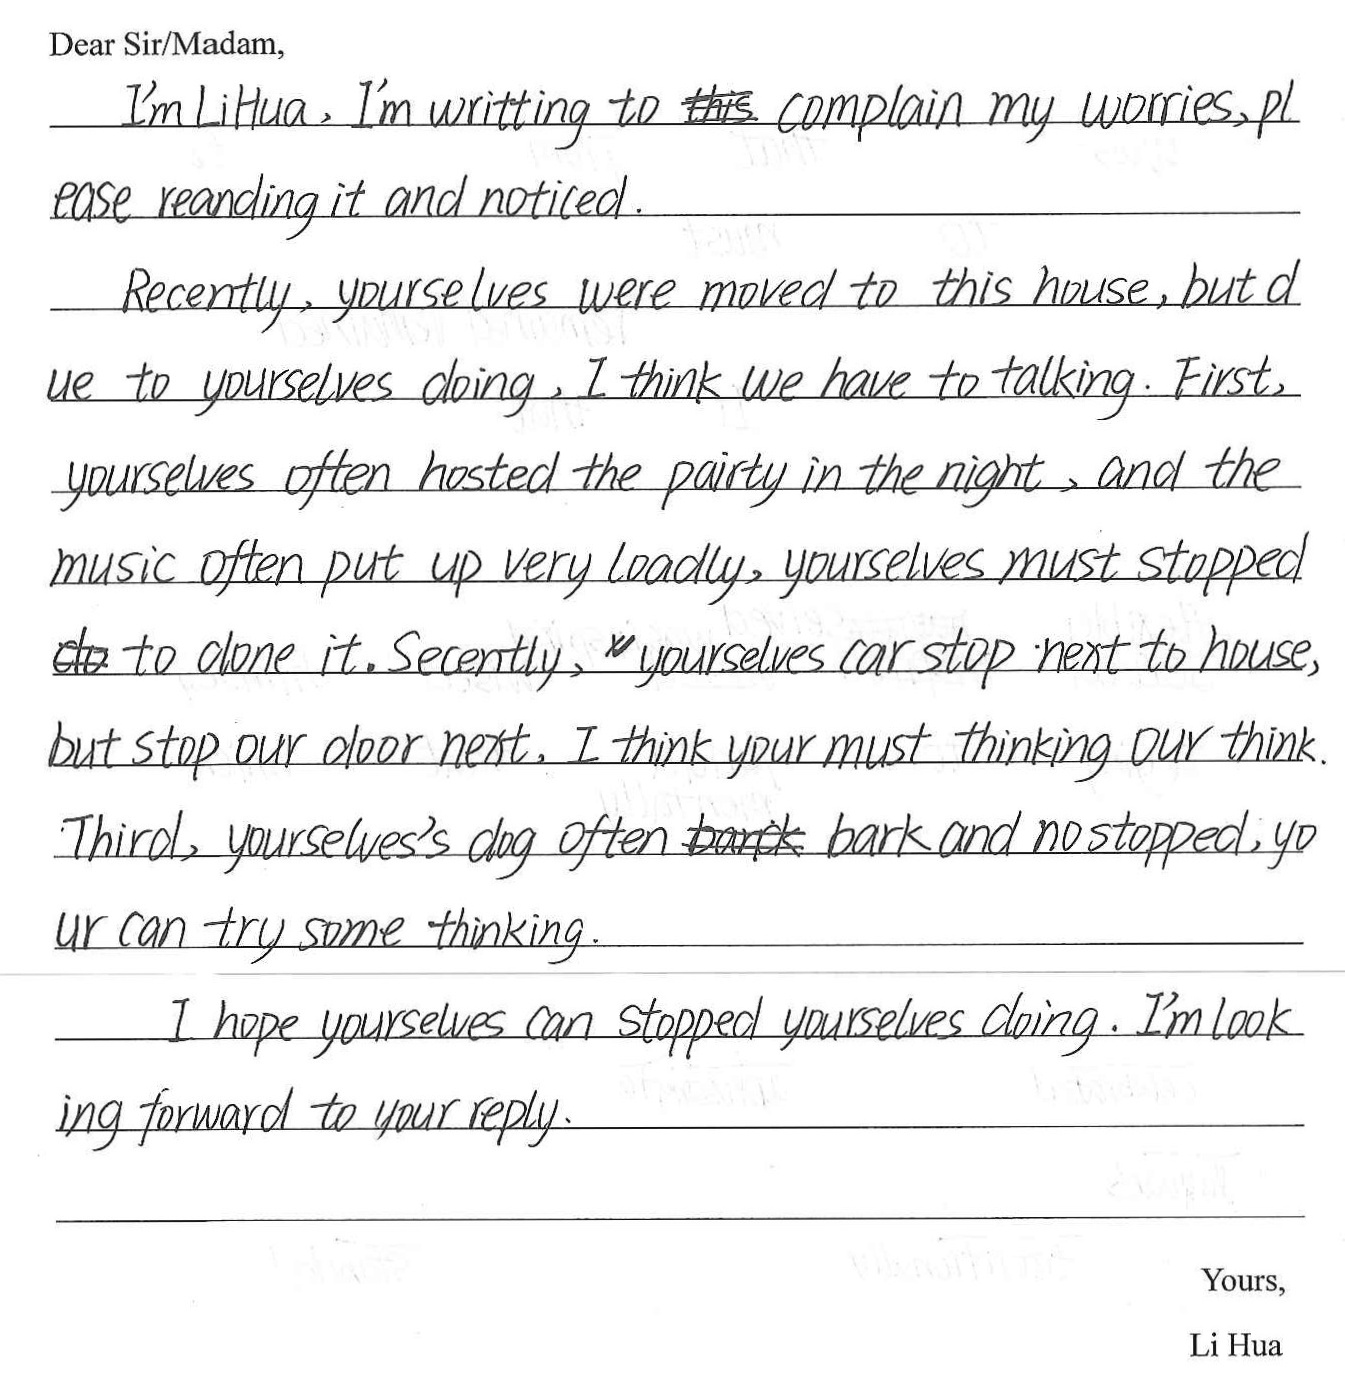 Dear Sir/Madam,
I'm LiHua, I'm writting to this complain my worries, pl
ease reanding it and noticed.
Recently, yourselves were moved to this house, but d
ue to yourselves doing, I think we have to talking. First,
yourselves often hosted the pairty in the night, and the
music often put up very loadly, yourselves must stopped
do to done it. Secently, yourselves car stop next to house,
but stop our door next. I think your must thinking our think.
Third, yourselves's dog often bark and no stopped, yo
ur can try some thinking.
I hope yourselves can stopped yourselves doing. I'm look
ing forward to your reply.
Yours,
Li Hua